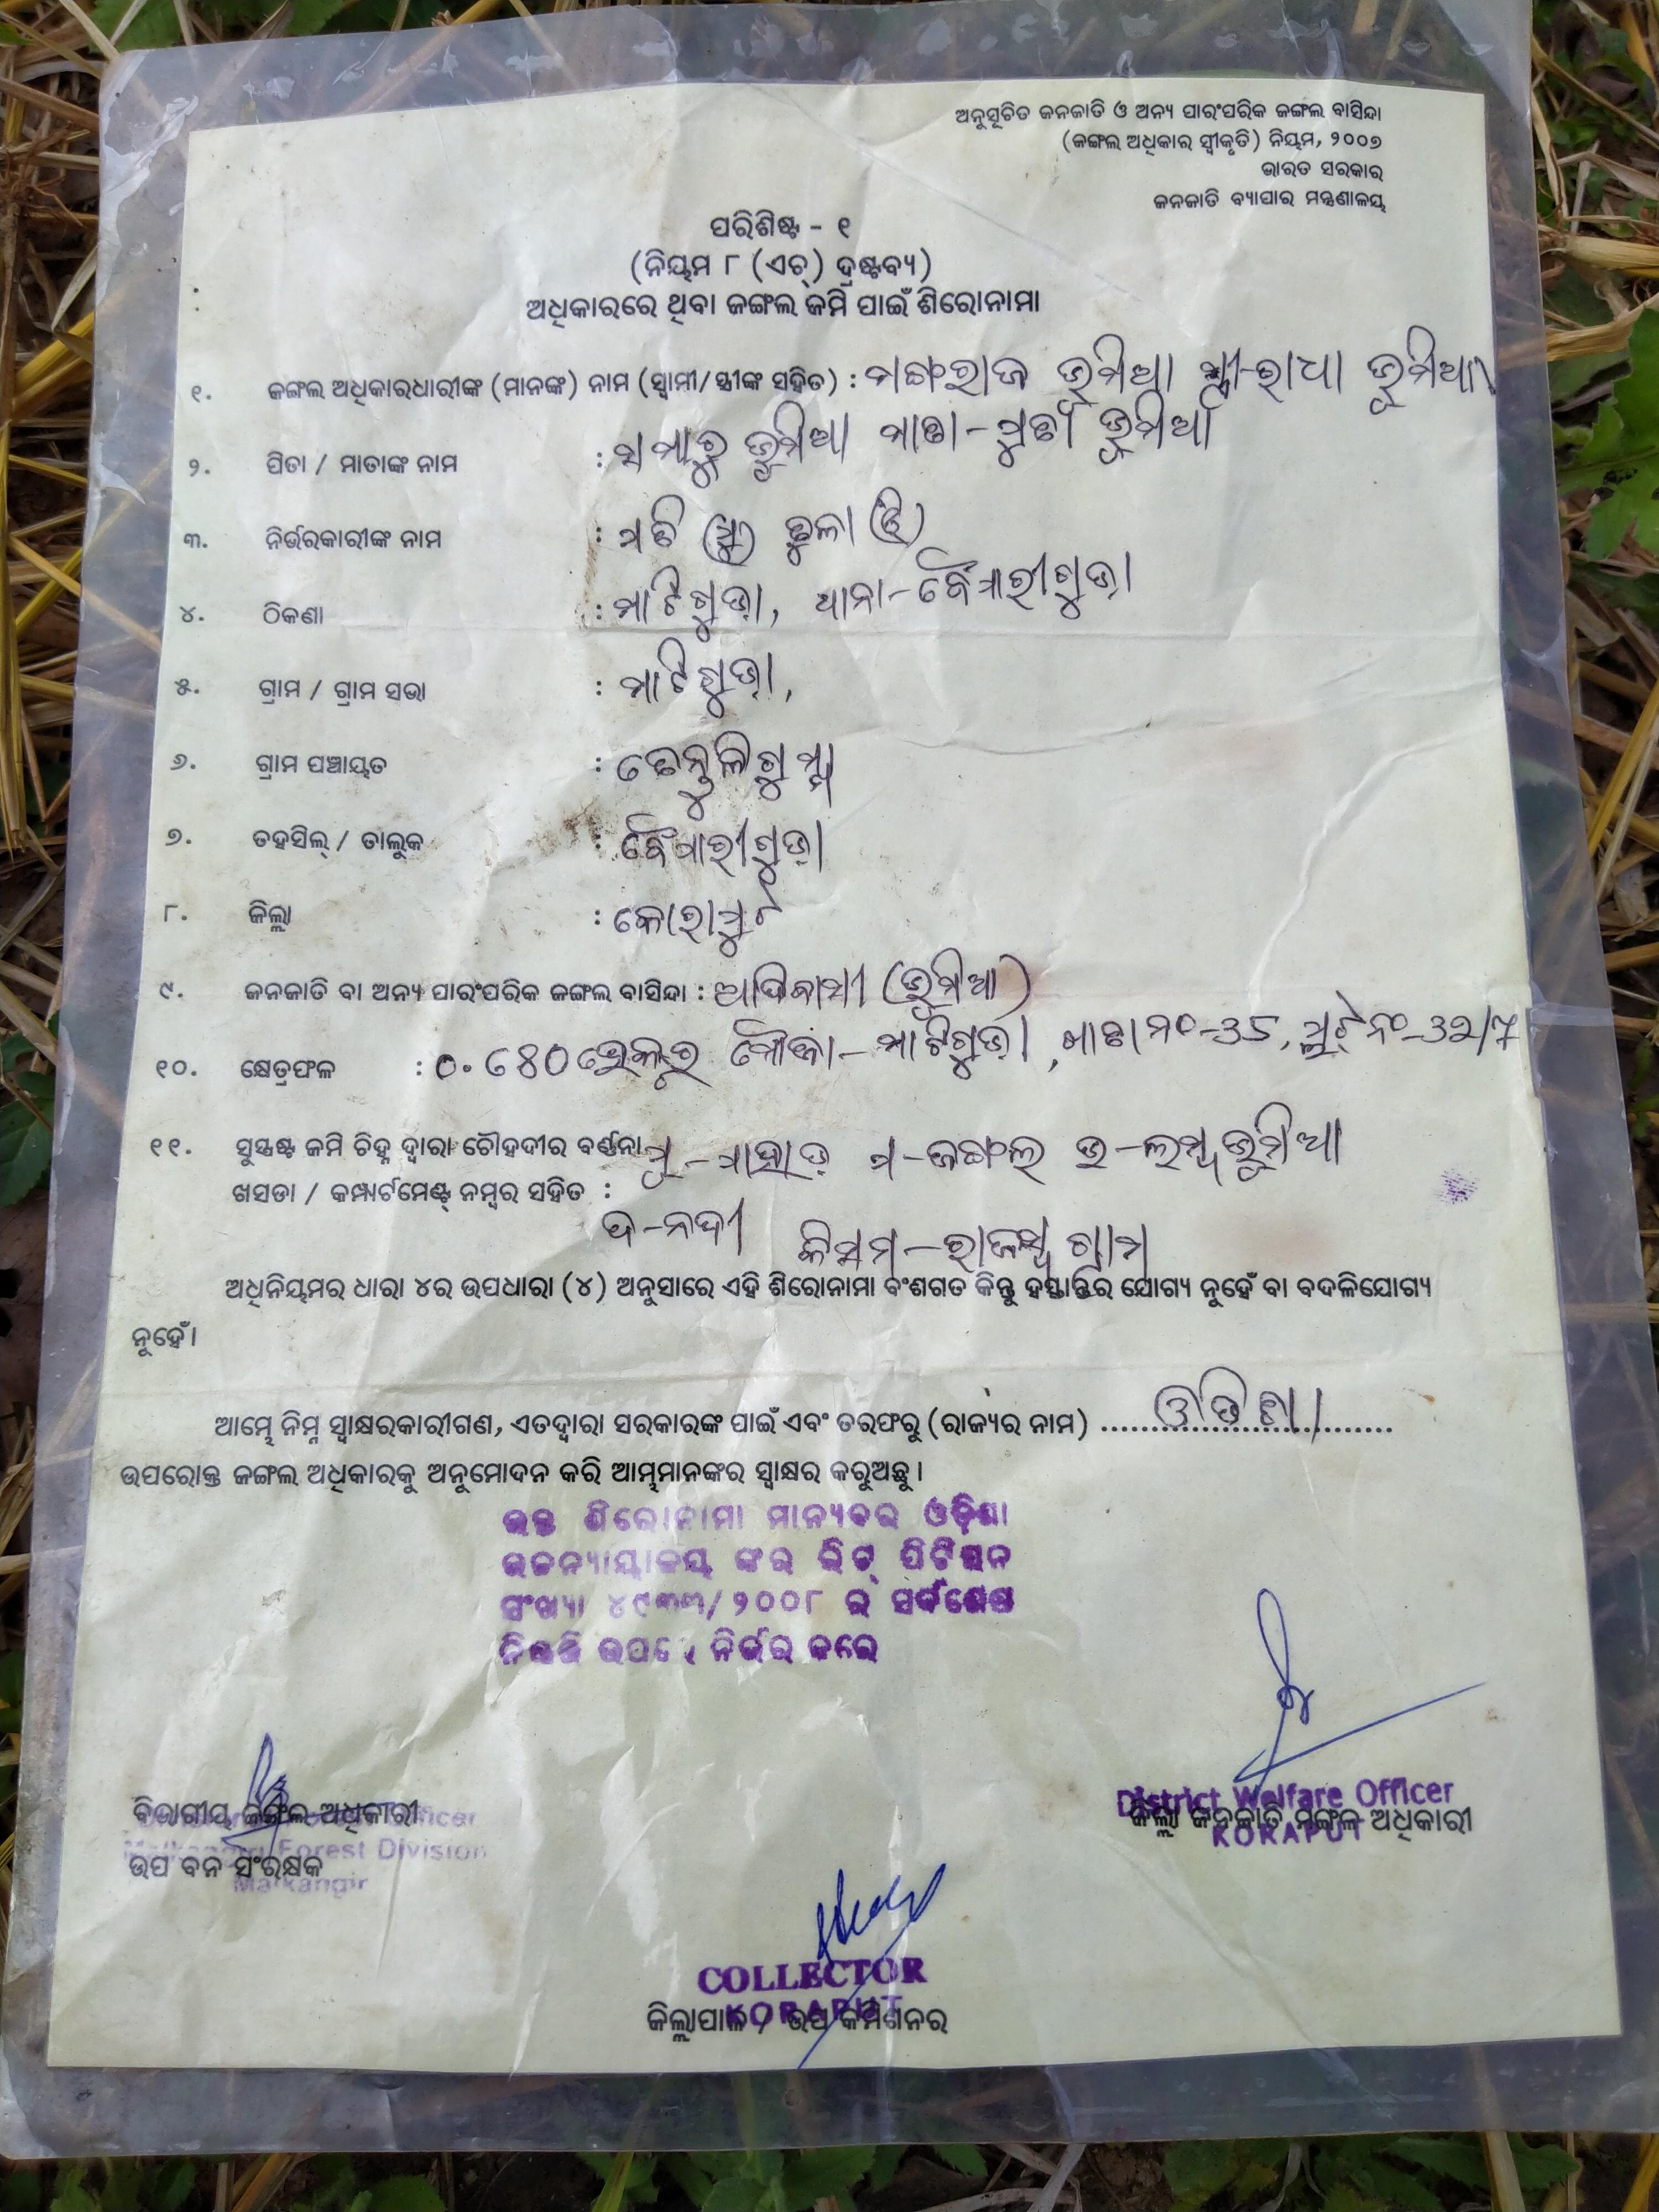 ଅନୁସୂଚିତ ଜନଜାତି ଓ ଅନ୍ୟ ପାରଂପରିକ ଜଙ୍ଗଲ ବାସିନ୍ଦା
(ଜଙ୍ଗଲ ଅଧିକାର ସ୍ୱୀକୃତି) ନିୟମ, ୨୦୦୭
ଭାରତ ସରକାର
ଜନଜାତି ବ୍ୟାପାର ମନ୍ତ୍ରଣାଳୟ
ପରିଶିଷ୍ଟ - ୧
(ନିୟମ ୮ (ଏଚ୍) ଦ୍ରଷ୍ଟବ୍ୟ)
ଅଧିକାରରେ ଥିବା ଜଙ୍ଗଲ ଜମି ପାଇଁ ଶିରୋନାମା
୧. ଜଙ୍ଗଲ ଅଧିକାରଧାରୀଙ୍କ (ମାନଙ୍କ) ନାମ (ସ୍ୱାମୀ/ସ୍ତ୍ରୀଙ୍କ ସହିତ) : ମଙ୍ଗରାଜ ଭୂମିଆ ସ୍ତ୍ରୀ-ରାଧା ଭୂମିଆ
୨. ପିତା / ମାତାଙ୍କ ନାମ : ସମାରୁ ଭୂମିଆ ମାତା- ଭୂମିଆ
୩. ନିର୍ଭରକାରୀଙ୍କ ନାମ : (ପୁ) (ଝି)
୪. ଠିକଣା : ମାଟିଗୁଡା, ଥାନା-ବୈପାରୀଗୁଡା
୫. ଗ୍ରାମ / ଗ୍ରାମ ସଭା : ମାଟିଗୁଡା,
୬. ଗ୍ରାମ ପଞ୍ଚାୟତ : ତେନ୍ତୁଳିଗୁମ୍ମା
୭. ତହସିଲ୍ / ତାଲୁକ : ବୈପାରୀଗୁଡା
୮. ଜିଲ୍ଲା : କୋରାପୁଟ
୯. ଜନଜାତି ବା ଅନ୍ୟ ପାରଂପରିକ ଜଙ୍ଗଲ ବାସିନ୍ଦା : ଆଦିବାସୀ (ଭୂମିଆ)
୧୦. କ୍ଷେତ୍ରଫଳ : ମୌଜା-ମାଟିଗୁଡା, ଖାତା ନଂ-୩୫, ପ୍ଲଟ୍ ନଂ-
୧୧. ସୁସ୍ପଷ୍ଟ ଜମି ଚିହ୍ନ ଦ୍ୱାରା ଚୌହଦୀର ବର୍ଣ୍ଣନା ପୂ-ପାହାଡ ପ-ଜଙ୍ଗଲ ଉ- ଭୂମିଆ
ଖସଡା / କମ୍ପାର୍ଟମେଣ୍ଟ୍ ନମ୍ବର ସହିତ :
ଦ-ନଦୀ କିସମ-ରାଜସ୍ୱ ଗ୍ରାମ
ଅଧିନିୟମର ଧାରା ୪ର ଉପଧାରା (୪) ଅନୁସାରେ ଏହି ଶିରୋନାମା ବଂଶଗତ କିନ୍ତୁ ହସ୍ତାନ୍ତର ଯୋଗ୍ୟ ନୁହେଁ ବା ବଦଳିଯୋଗ୍ୟ
ନୁହେଁ।
ଆମ୍ଭେ ନିମ୍ନ ସ୍ୱାକ୍ଷରକାରୀଗଣ, ଏତଦ୍ୱାରା ସରକାରଙ୍କ ପାଇଁ ଏବଂ ତରଫରୁ (ରାଜ୍ୟର ନାମ) ଓଡିଶା
ଉପରୋକ୍ତ ଜଙ୍ଗଲ ଅଧିକାରକୁ ଅନୁମୋଦନ କରି ଆମ୍ଭମାନଙ୍କର ସ୍ୱାକ୍ଷର କରୁଅଛୁ।
ଉକ୍ତ ଶିରୋନାମା ମାନ୍ୟବର ଓଡ଼ିଶା
ଉଚ୍ଚନ୍ୟାୟାଳୟ ଙ୍କର ରିଟ୍ ପିଟିସନ
ସଂଖ୍ୟା ୪୯୩୩/୨୦୦୮ ର ସର୍ବଶେଷ
ନିଷ୍ପତ୍ତି ଉପରେ ନିର୍ଭର କରେ
District Welfare Officer
ଜିଲ୍ଲା ଜନଜାତି ମଙ୍ଗଳ ଅଧିକାରୀ
KORAPUT
ବିଭାଗୀୟ ଜଙ୍ଗଲ ଅଧିକାରୀ Officer
Malkangiri Forest Division
ଉପ ବନ ସଂରକ୍ଷକ
COLLECTOR
KORAPUT
ଜିଲ୍ଲାପାଳ / ଉପ କମିଶନର